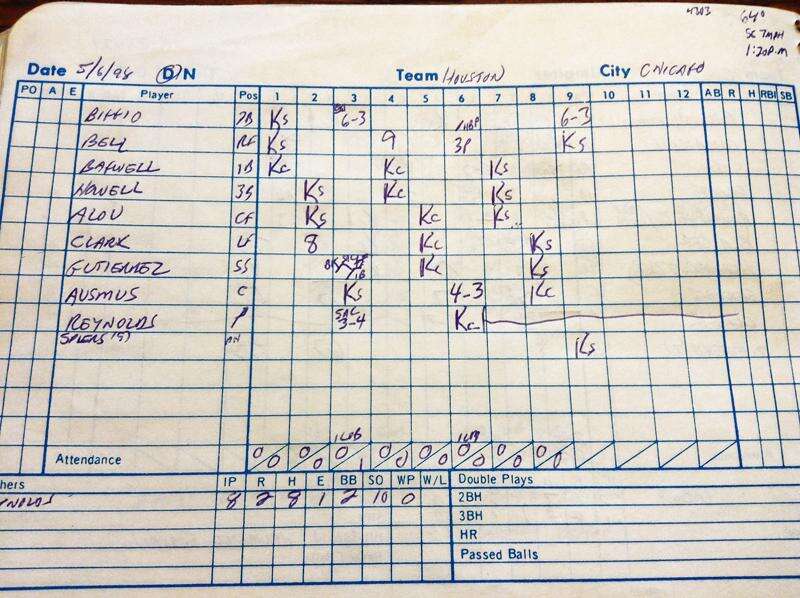 4303 64°
SG 7MPH
1:20 P.M
Date 5/6/98 D N Team HOUSTON City CHICAGO
PO A E Player Pos 1 2 3 4 5 6 7 8 9 10 11 12 AB R H RBI SB
BIGGIO 2B Ks 6-3 HBP 6-3
BELL RF Ks 9 3P Ks
BAGWELL 1B Kc Kc Ks
HOWELL 3B Ks Kc Ks
ALOU CF Ks Kc Ks
CLARK LF 8 Kc Ks
GUTIERREZ SS 1B Kc Ks
AUSMUS C Ks 4-3 Kc
REYNOLDS P SAC 3-4 Kc
SPIERS (9) PH Ks
1LOB 1LOB
Attendance 0 0 0 0 0 1 0 0 0 0 0 0 0 0 0 0
hers IP R H E BB SO WP W/L Double Plays
YNOLDS 8 2 8 1 2 10 0 2BH
3BH
HR
Passed Balls